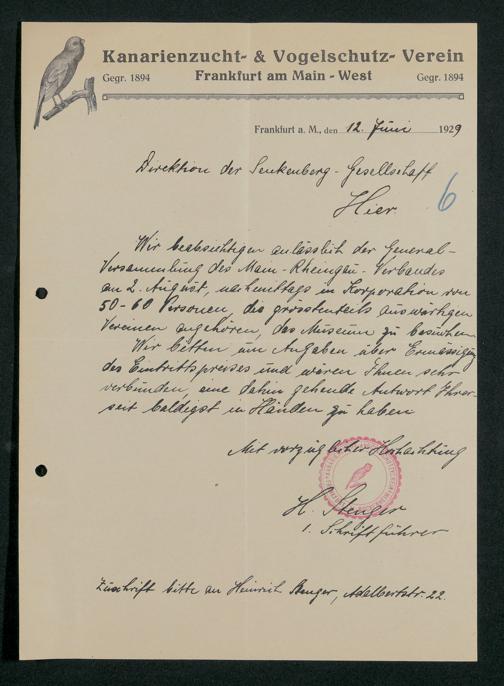 Kanarienzucht- & Vogelschutz-Verein
Gegr. 1894 Frankfurt am Main - West Gegr. 1894
Frankfurt a. M., den 12. Juni 1929
Direktion der Senkenberg-Gesellschaft
Hier.
6
Wir beabsichtigen anlässlich der General-
Versammlung des Main-Rheingau-Verbandes
am 2. August, nachmittags in Korporation von
50-60 Personen, die grösstenteils auswärtigen
Vereinen angehören, das Museum zu besuchen.
Wir bitten um Angaben über Ermässigung
des Eintrittspreises und wären Ihnen sehr
verbunden, eine dahin gehende Antwort Ihrer-
seit baldigst in Händen zu haben
Mit vorzüglicher Hochachtung
H. Stenger
1. Schriftführer
Zuschrift bitte an Heinrich Stenger, Adalbertstr. 22.